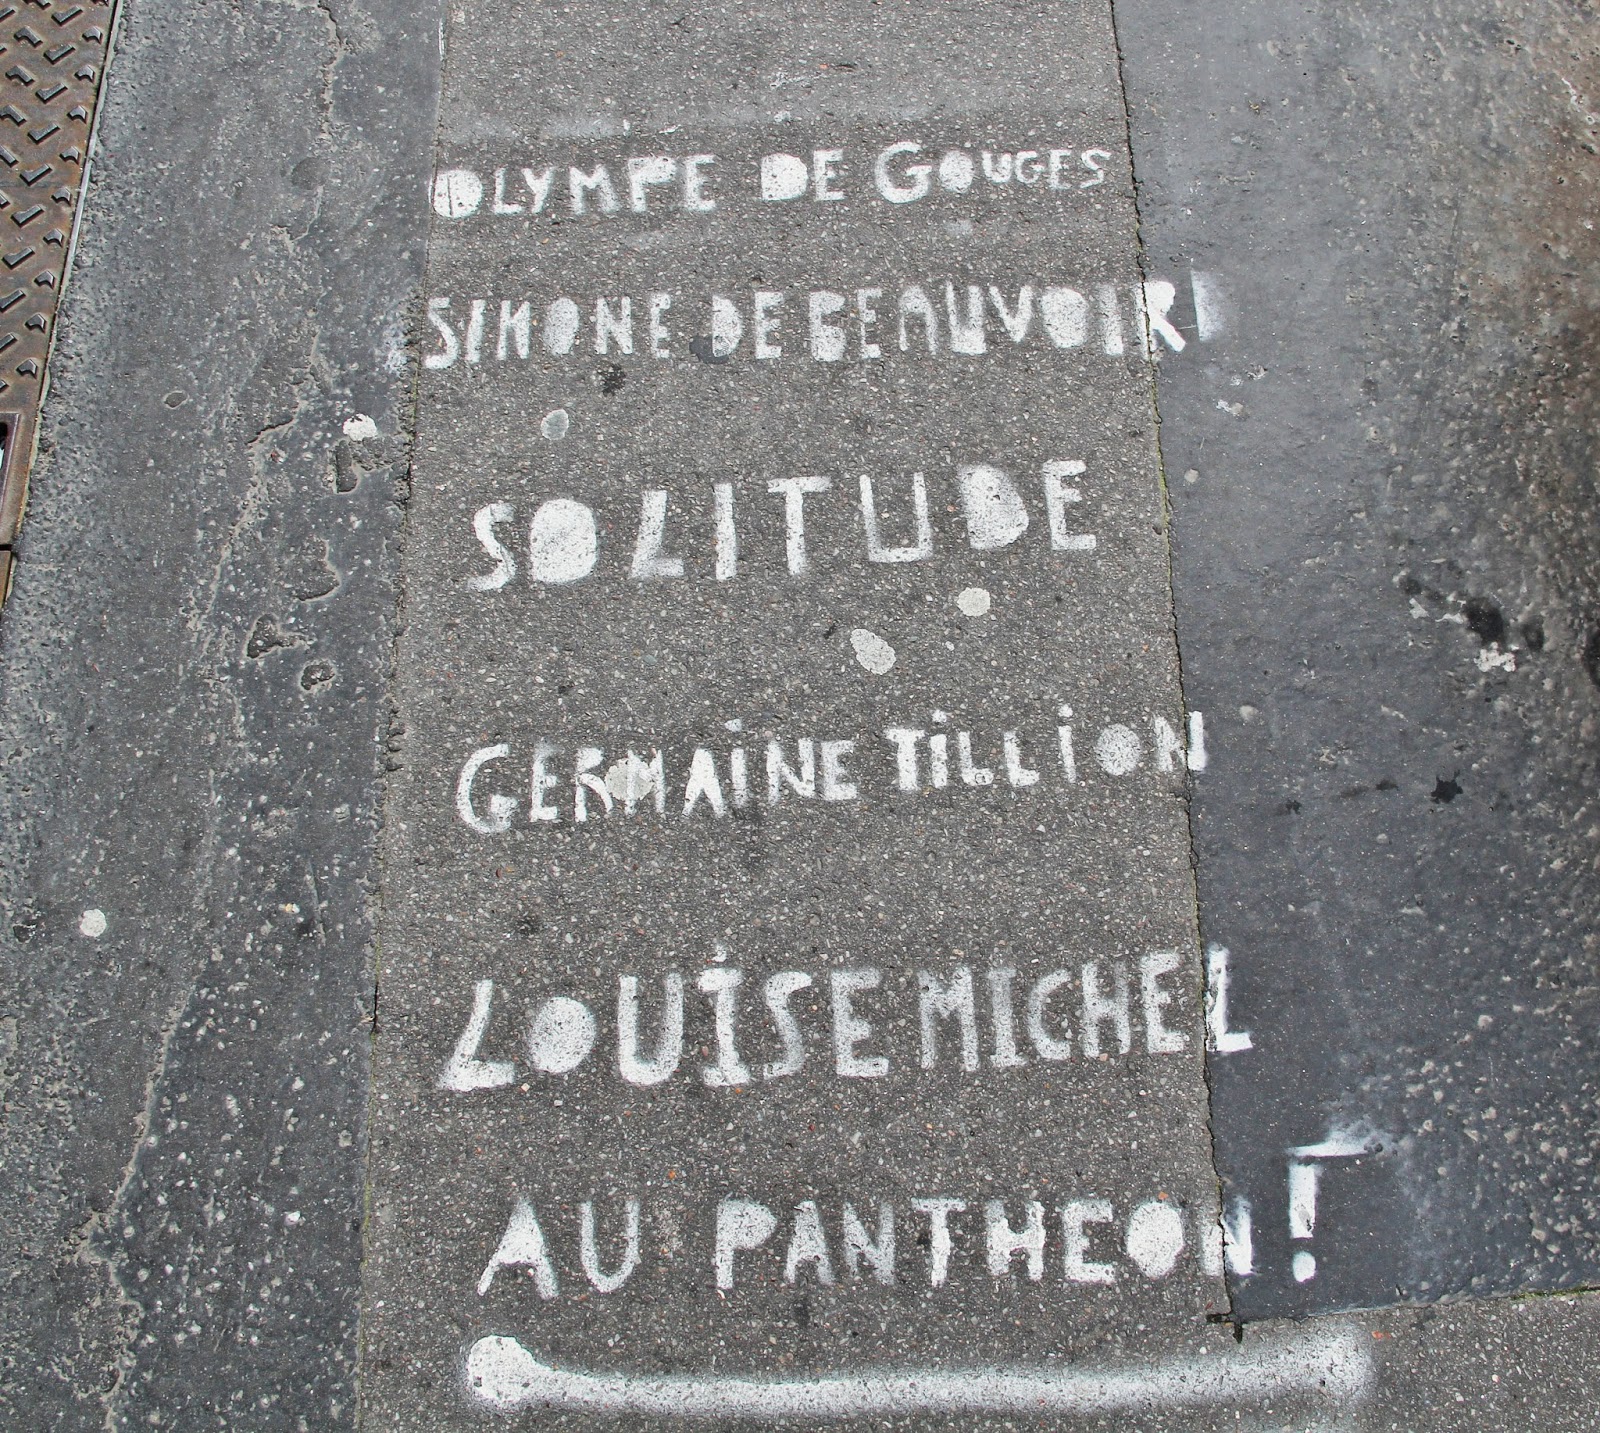 OLYMPE DE GOUGES
SIMONE DE BEAUVOIR
SOLITUDE
GERMAINE TILLION
LOUISE MICHEL
AU PANTHEON!